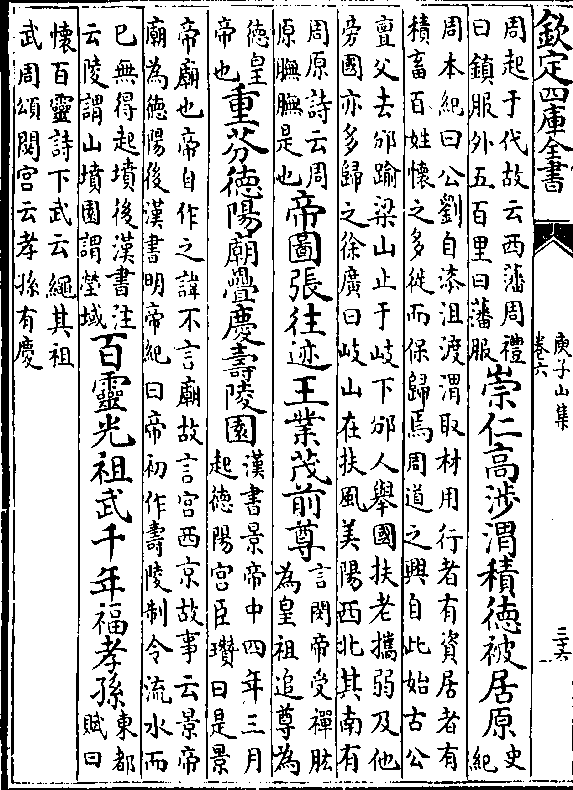 欽定四庫全書
庾子山集
卷六
三六
周起于代故云西藩周禮
曰鎮服外五百里曰藩服
崇仁高涉渭積德被居原
史
紀
周本紀曰公劉自漆沮渡渭取材用行者有資居者有
積畜百姓懷之多徙而保歸焉周道之興自此始古公
亶父去邠踰梁山止于岐下邠人舉國扶老攜弱及他
旁國亦多歸之徐廣曰岐山在扶風美陽西北其南有
周原詩云周
原膴膴是也
帝圖張往迹王業茂前尊
言閔帝受禪肱
為皇祖追尊為
德皇
帝也
重芬德陽廟疊慶壽陵園
漢書景帝中四年三月
起德陽宫臣瓚曰是景
帝廟也帝自作之諱不言廟故言宫西京故事云景帝
廟為德陽後漢書明帝紀曰帝初作壽陵制令流水而
已無得起墳後漢書注
云陵謂山墳園謂塋域
百靈光祖武千年福孝孫
東都
賦曰
懷百靈詩下武云繩其祖
武周頌閟宫云孝孫有慶